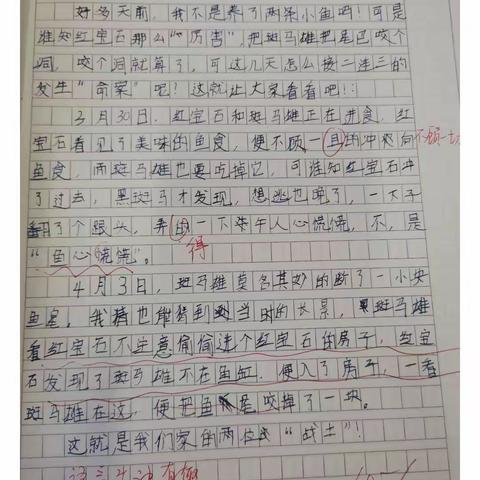 好多天前，我不是养了两条小鱼吗！可是
谁知红宝石那么“厉害”，把斑马雄把尾巴咬个
洞，咬个洞就算了，可这几天怎么接二连三的
发生“命案”呢？这就让大家看看吧！：
3月30日，红宝石和斑马雄正在进食，红
宝石看见了美味的鱼食，便不顾一且的冲向
不顾一切
鱼食，而斑马雄也要吃掉它，可谁知红宝石冲
了过去，黑斑马才发现，想逃也晚了，一下子
翻了个跟头，弄的一下来午人心慌慌，不，是
得
“鱼心慌慌”。
4月3日，斑马雄莫名其妙的断了一小块
鱼尾，我猜也能猜到到当时的长景，黑斑马雄
看红宝石不注意偷偷进个红宝石的房子，红宝
石发现了斑马雄不在鱼缸，便入了房子，一看
斑马雄在这，便把鱼尾咬掉了一块。
这就是我们家的两位“战士”！